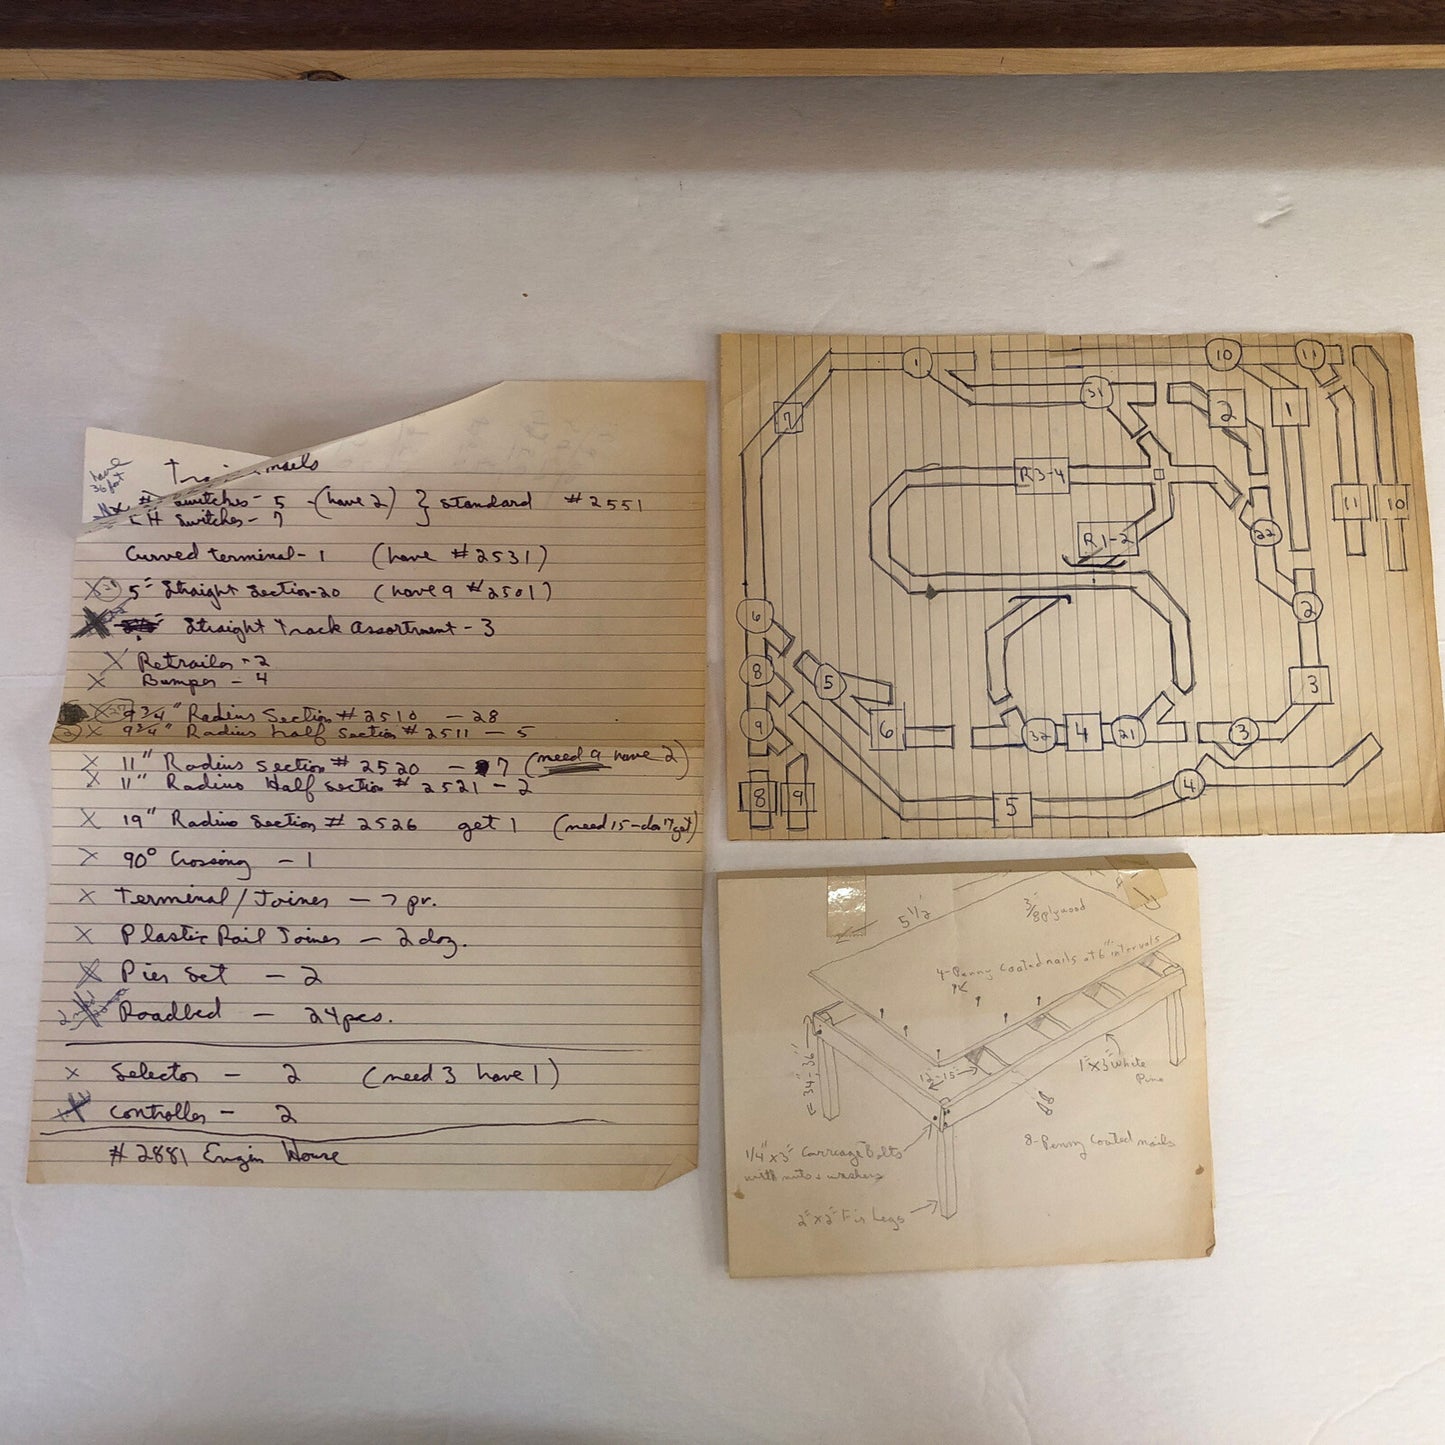 have
36 feet
Switches - 5 - (have 2) } Standard #2551
LH Switches - 7
Curved terminal - 1 (have #2531)
X 5" Straight Section - 20 (have 9 #2501)
X Straight Track Assortment - 3
X Retrailer - 2
X Bumper - 4
X 9 3/4" Radius Section # 2510 - 28
X 9 3/4" Radius half section # 2511 - 5
X 11" Radius Section # 2520 - 7 (need 9 have 2)
X 11" Radius Half section # 2521 - 2
X 19" Radius Section # 2526 get 1 (need 15 - don't get)
X 90° Crossing - 1
X Terminal/Joiners - 7 pr.
X Plastic Rail Joiners - 2 doz.
X Pier Set - 2
X Roadbed - 24 pcs.
X Selector - 2 (need 3 have 1)
X Controller - 2
#2881 Engin House
1 10 11
7 31 2 1
R3-4
11 10
R1-2
22
6 2
8 5 3
9 6 32 4 21 3
8 9 5 4
5 1/2
3/8 plywood
4-Penny Coated nails at 6" intervals
34"-36"
12-15"
1"x3" White
Pine
8-Penny Coated nails
1/4"x3" Carriage Bolts
with nuts + washers
2"x2" Fir Legs